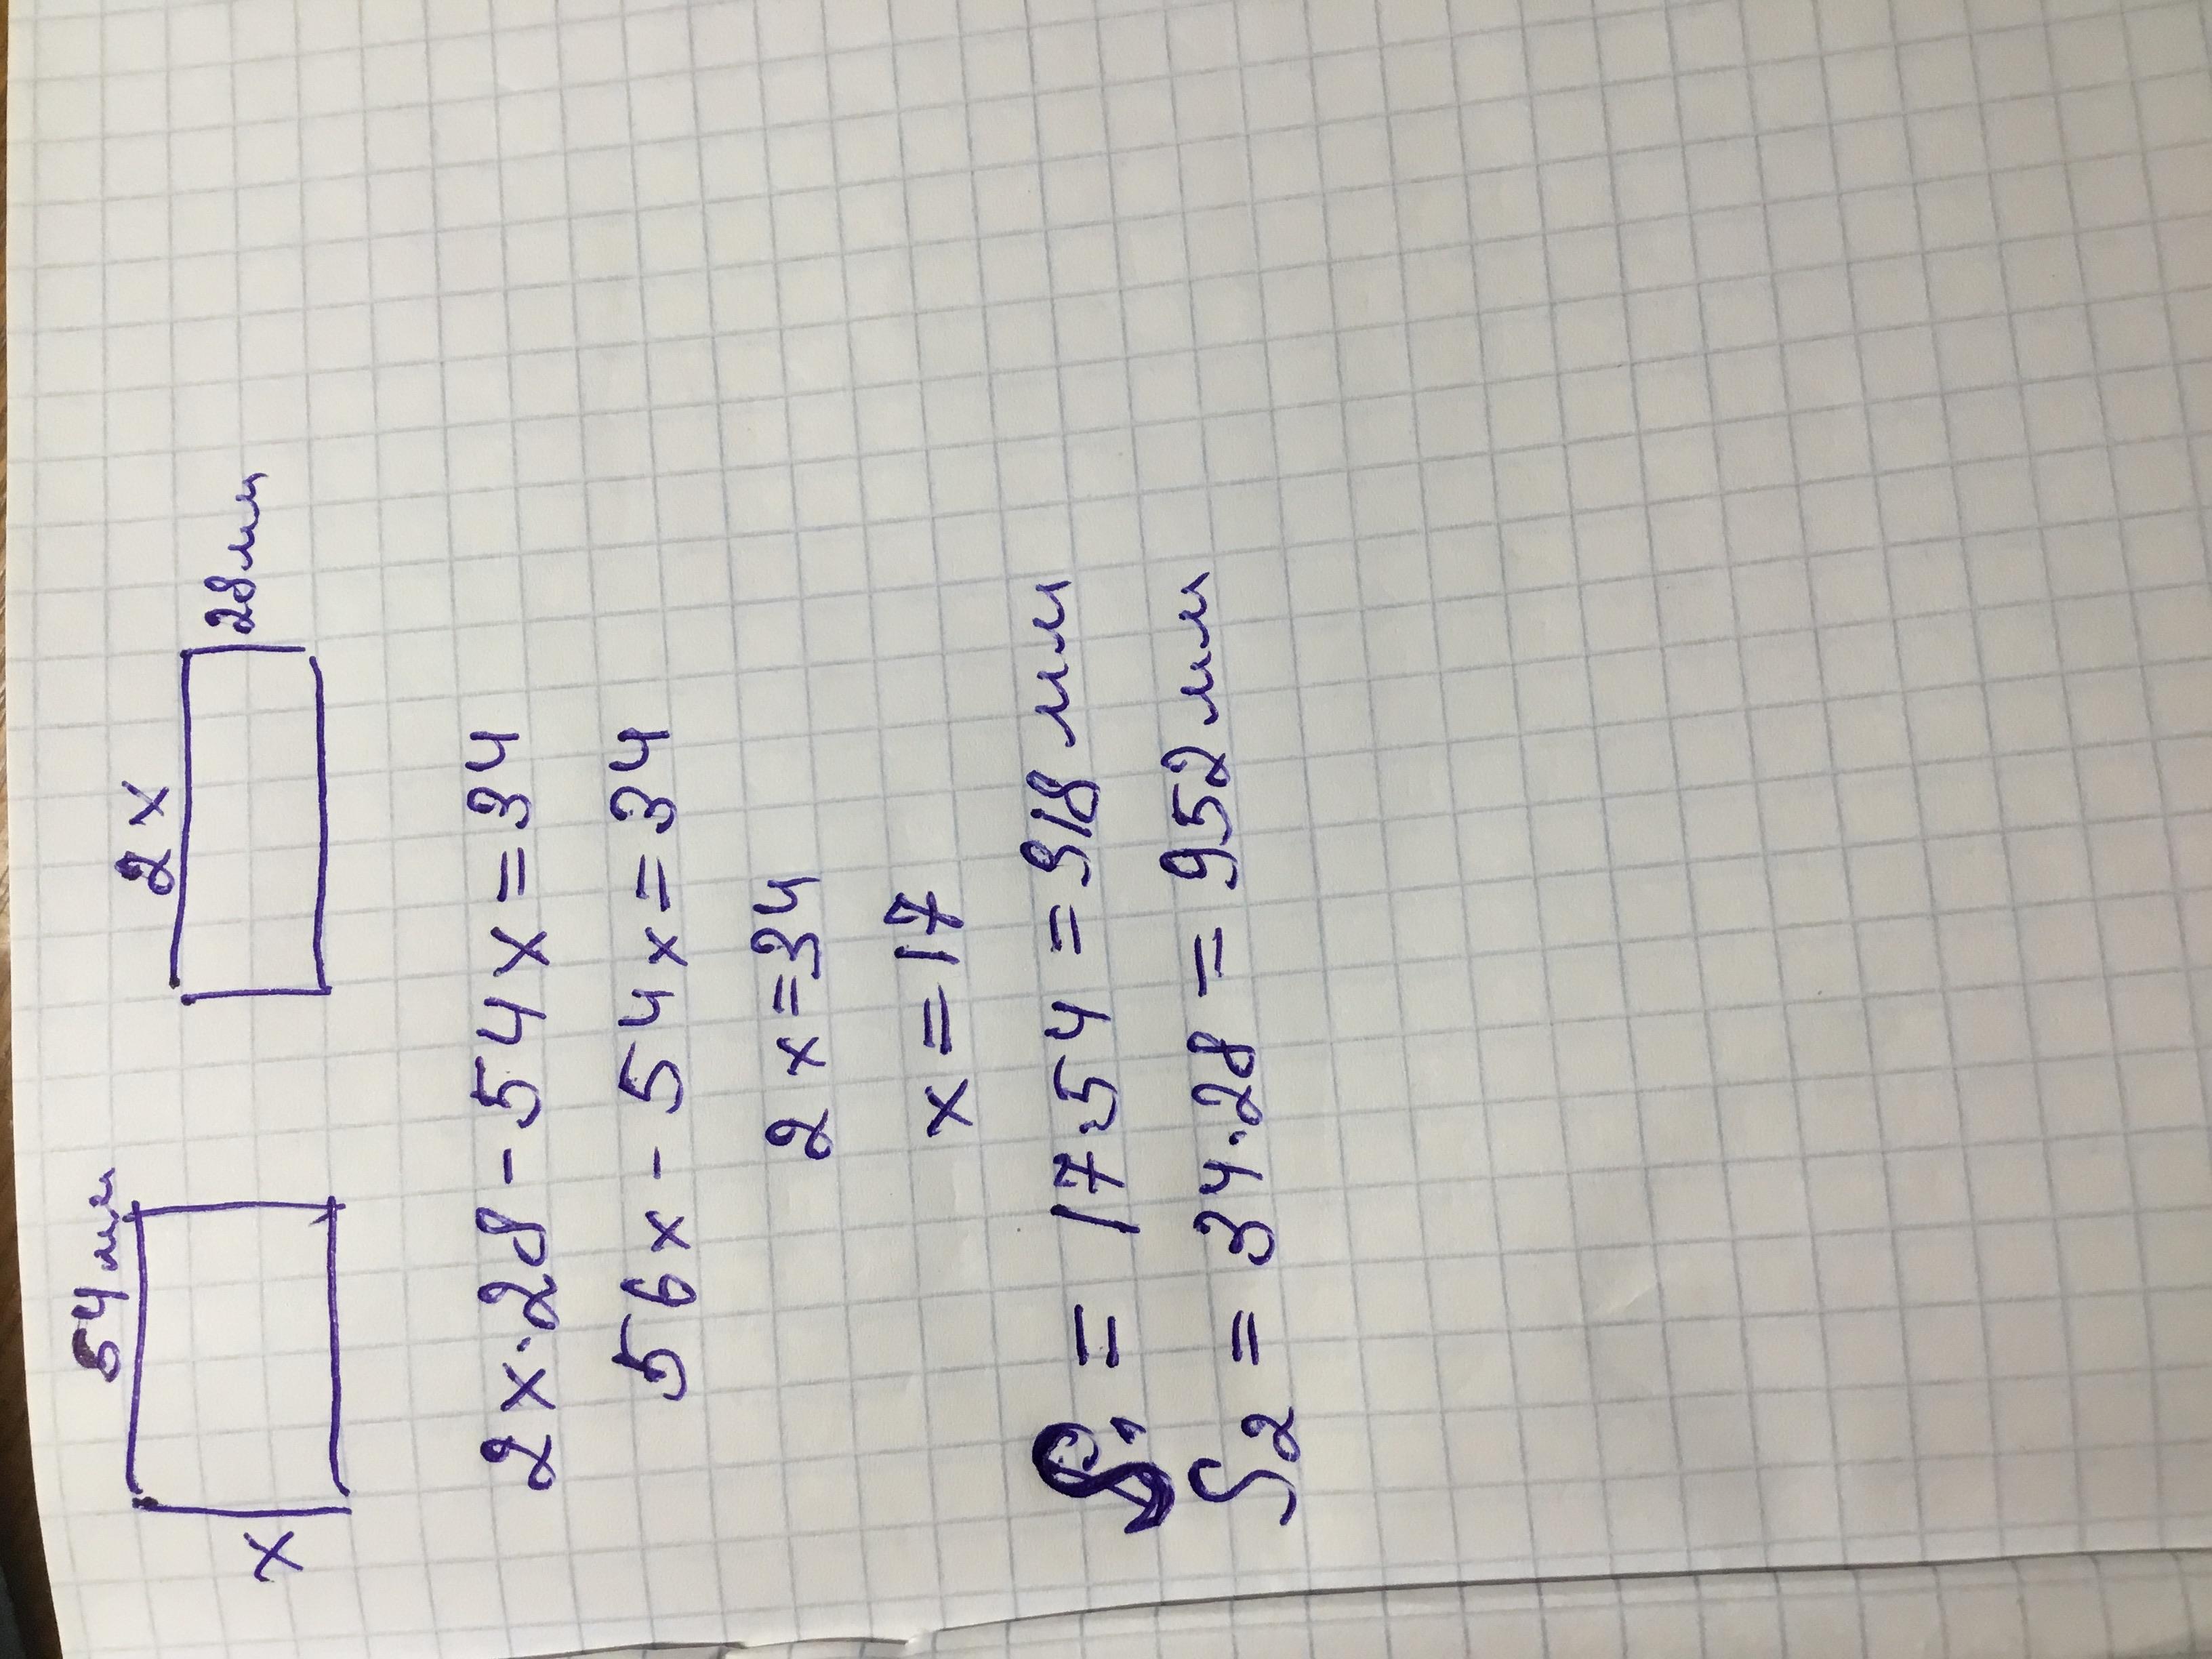 54 мм
x
2x
28мм
2x·28-54x=34
56x-54x=34
2x=34
x=17
S₁=17·54=918 мм
S₂=34·28=952 мм